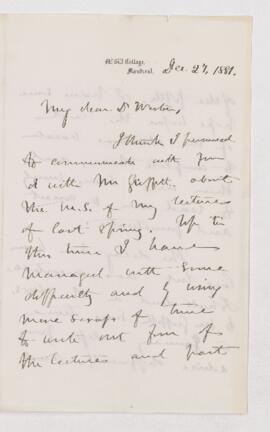 McGill College,
Montreal.
Dec. 27, 1881.
My dear Dr
I think I promised
to communicate with you
or with Mr about
the M.S. of my lectures
of last Spring. Up to
this time I have
managed with some
difficulty and by using
mere scraps of time
to write out four of
the lectures and part